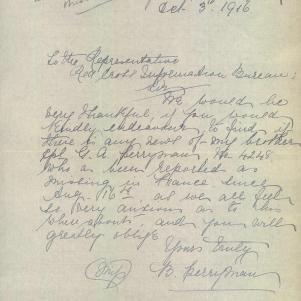 Oct 3rd 1916
To the Representative
Red Cross Information Bureau;
Sir
We would be
very thankful, if you would
kindly endeavour, to find if
there is any news of my brother
Cpl G. A. Perryman No 4248
who as been reported as
missing in France since
Aug. 16th as we all feel
so very anxious as to his
whereabouts and you will
greatly oblige
Yours Truly
B. Perryman